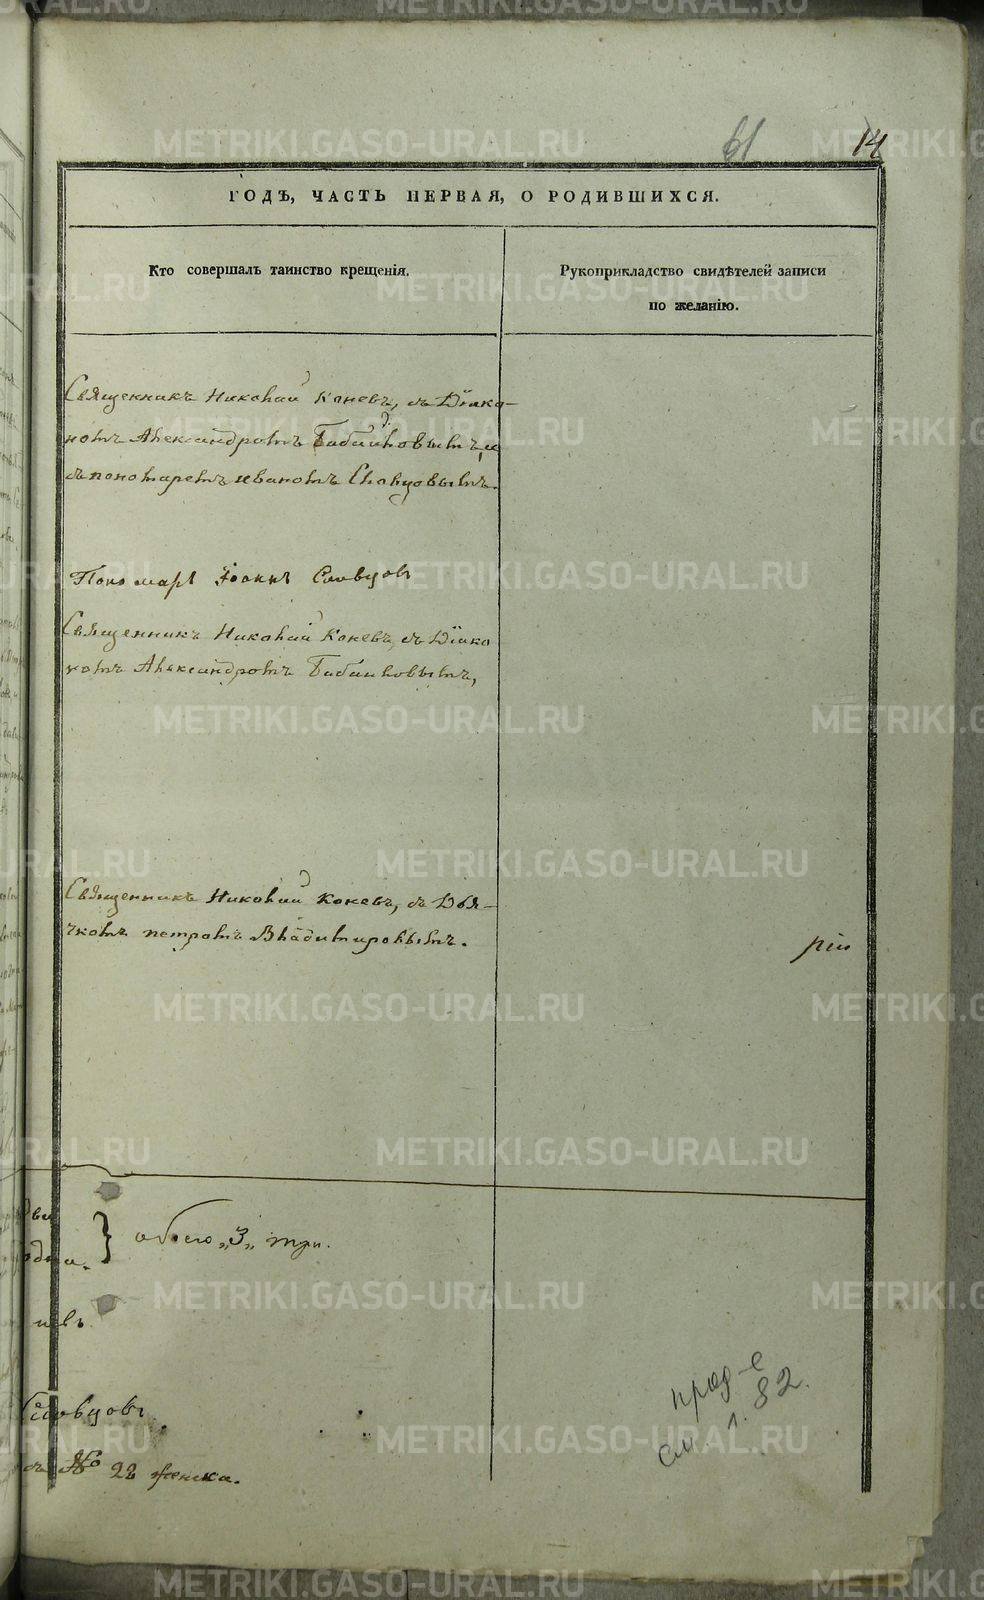 61 14
ГОДЪ, ЧАСТЬ ПЕРВАЯ, О РОДИВШИХСЯ.
Кто совершалъ таинство крещенія.
Рукоприкладство свидѣтелей записи
по желанію.
Священникъ Николай Коневъ, съ Діако-
номъ Александромъ Бибиковымъ, и
съ пономаремъ Иваномъ Словцовымъ.
Пономарь Іоаннъ Словцовъ
Священникъ Николай Коневъ, съ Діако
номъ Александромъ Бибиковымъ,
Священникъ Николай Коневъ, съ Дья-
чкомъ петромъ Владимировымъ.
обоего „3„ три.
Словцовъ
съ № 22 женска.
прод-е
см. л. 82.
METRIKI.GASO-URAL.RU